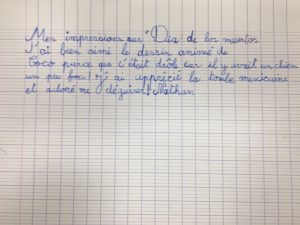 Mes impressions sur "Dia de los muertos
J'ai bien aimé le dessin animé de
Coco parce que c'était drôle car il y avait un chien
un peu fou! J'ai apprécié la tombe mexicaine
et adoré me déguiser! Nathan